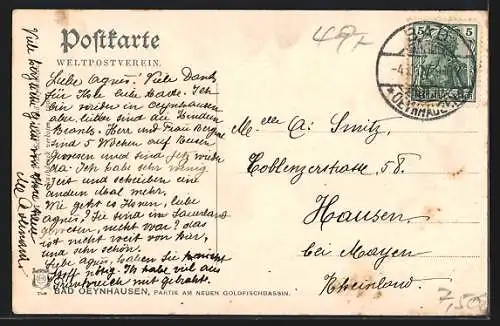 Postkarte
WELTPOSTVEREIN.
49,-
BAD
OEYNHAUSEN
5 5
Liebe Agnes! Viele Dank
für Ihre liebe Karte. Ich
bin wieder in Oeynhausen
aber leider sind die Kinder
krank. Herr und Frau
sind 5 Wochen auf Reisen
gewesen und sind jetz wieder
da. Ich habe sehr wenig
Zeit und schreibe ein
anders Mal mehr.
Wie geht es Ihnen, liebe
Agnes? Sie sind im Sauerland
gewesen, nicht war? das
ist nicht weit von hier,
und sehr schön.
Liebe Agnes, haben Sie
Stoff nötig. Ich habe viel aus
Frankreich mit gebracht.
Viele Grüße
Mlle A. Smitz,
Coblenzerstrasse 58.
Hausen
bei Mayen
Rheinland.
7,50
BAD OEYNHAUSEN, PARTIE AM NEUEN GOLDFISCHBASSIN.